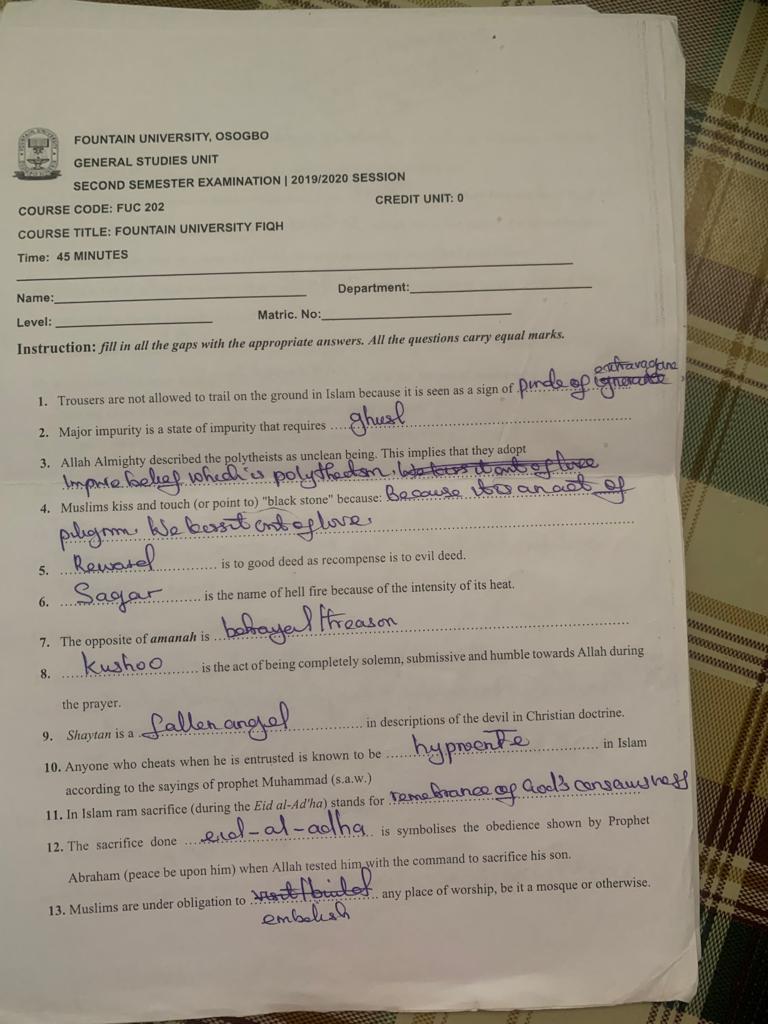 FOUNTAIN UNIVERSITY, OSOGBO
GENERAL STUDIES UNIT
SECOND SEMESTER EXAMINATION | 2019/2020 SESSION
COURSE CODE: FUC 202 CREDIT UNIT: 0
COURSE TITLE: FOUNTAIN UNIVERSITY FIQH
Time: 45 MINUTES
Name: Department:
Level: Matric. No:
Instruction: fill in all the gaps with the appropriate answers. All the questions carry equal marks.
1. Trousers are not allowed to trail on the ground in Islam because it is seen as a sign of pride of
2. Major impurity is a state of impurity that requires ghusl
3. Allah Almighty described the polytheists as unclean being. This implies that they adopt
belief which is
4. Muslims kiss and touch (or point to) "black stone" because: Because it is an act of
out of love
5. Reward is to good deed as recompense is to evil deed.
6. Saqar is the name of hell fire because of the intensity of its heat.
7. The opposite of amanah is betrayal/treason
8. Kushoo is the act of being completely solemn, submissive and humble towards Allah during
the prayer.
9. Shaytan is a fallen angel in descriptions of the devil in Christian doctrine.
10. Anyone who cheats when he is entrusted is known to be in Islam
according to the sayings of prophet Muhammad (s.a.w.)
11. In Islam ram sacrifice (during the Eid al-Ad'ha) stands for of God's
12. The sacrifice done eid-al-adha is symbolises the obedience shown by Prophet
Abraham (peace be upon him) when Allah tested him with the command to sacrifice his son.
13. Muslims are under obligation to any place of worship, be it a mosque or otherwise.
embelish